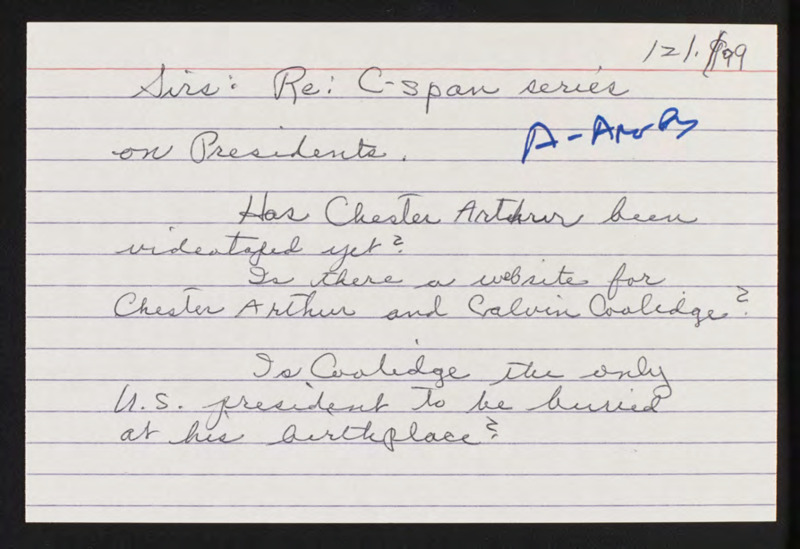 12/. 99
Sirs: Re: C-span series
on Presidents.
Has Chester Arthur been
videotaped yet?
Is there a website for
Chester Arthur and Calvin Coolidge?
Is Coolidge the only
U.S. president to be buried
at his birthplace?